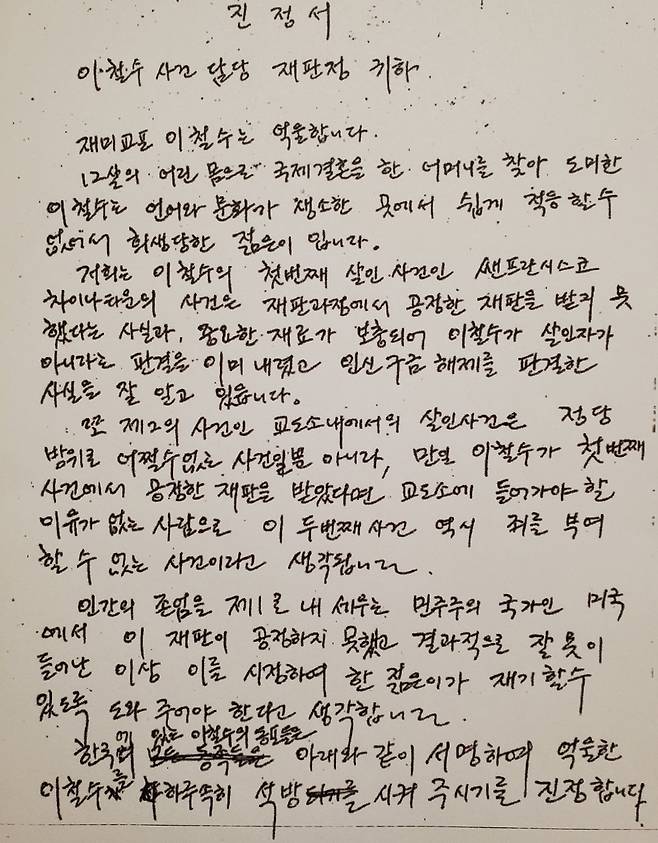 진 정 서
이철수 사건 담당 재판정 귀하
재미교포 이철수는 억울합니다.
12살의 어린 몸으로 국제결혼을 한 어머니를 찾아 도미한
이철수는 언어와 문화가 생소한 곳에서 쉽게 적응할수
없어서 희생당한 젊은이 입니다.
저희는 이철수의 첫번째 살인사건인 쌘프란시스코
차이나타운의 사건은 재판과정에서 공정한 재판을 받지 못
했다는 사실과, 중요한 재료가 보충되어 이철수가 살인자가
아니라는 판결을 이미 내렸고 인신구금 해제를 판결한
사실을 잘 알고 있읍니다.
또 제2의 사건인 교도소내에서의 살인사건은 정당
방위로 어쩔수없는 사건일뿐 아니라, 만일 이철수가 첫번째
사건에서 공정한 재판을 받았다면 교도소에 들어가야 할
이유가 없는 사람으로 이 두번째사건 역시 죄를 부여
할 수 없는 사건이라고 생각됩니다.
인간의 존엄을 제1로 내세우는 민주주의 국가인 미국
에서 이 재판이 공정하지 못했고 결과적으로 잘못이
들어난 이상 이를 시정하여 한 젊은이가 재기할수
있도록 도와주어야 한다고 생각합니다.
한국에 있는 이철수의 동포들은 아래와 같이 서명하여 억울한
이철수를 하루속히 석방시켜 주시기를 진정합니다